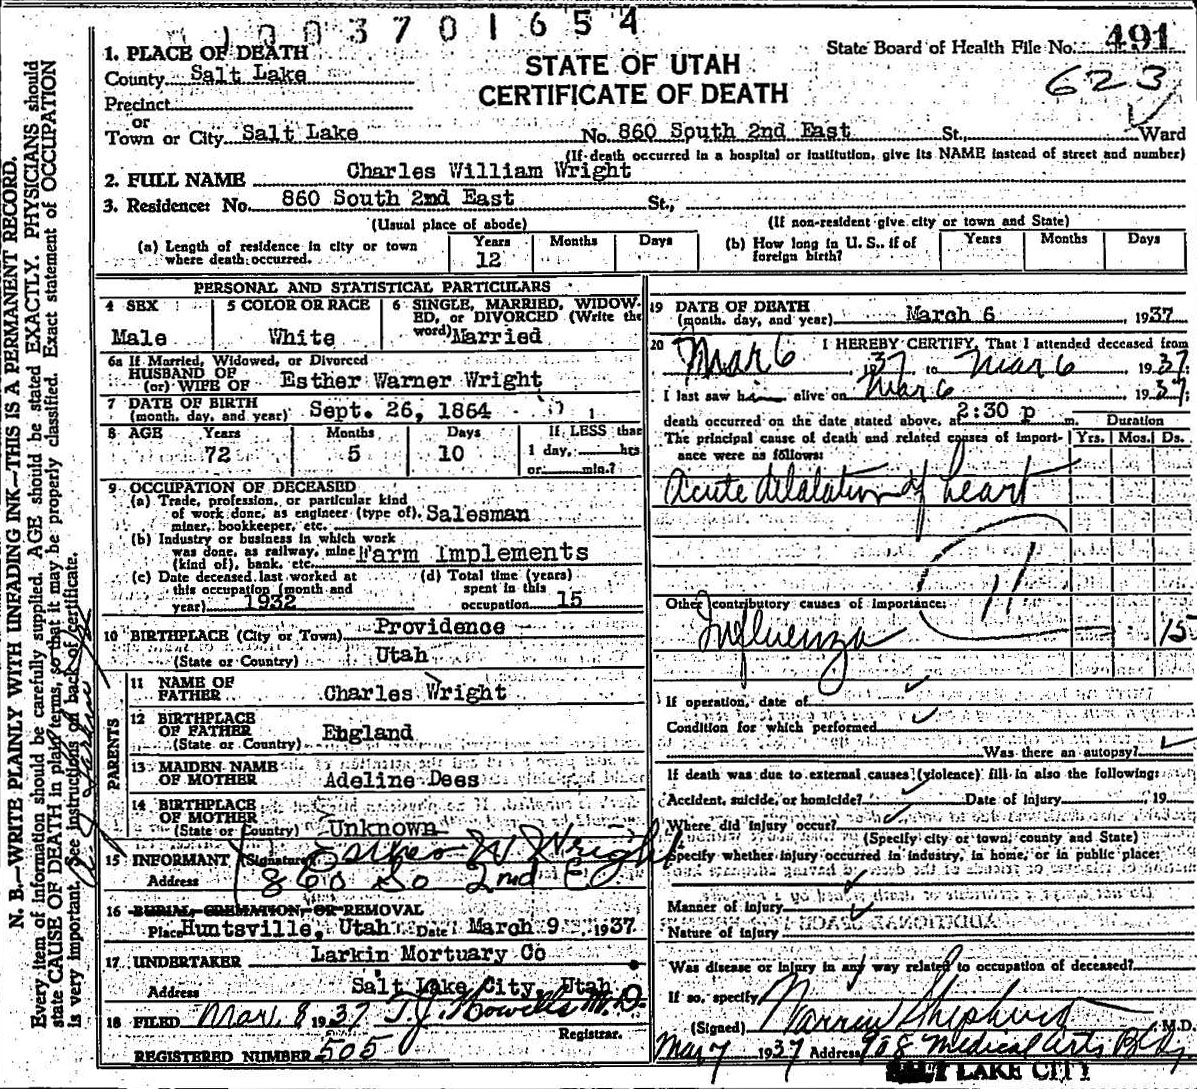 1003701654
State Board of Health File No. 491
623
STATE OF UTAH
CERTIFICATE OF DEATH
1. PLACE OF DEATH
County Salt Lake
Precinct
or
Town or City Salt Lake No. 860 South 2nd East St., Ward
(If death occurred in a hospital or institution, give its NAME instead of street and number)
2. FULL NAME Charles William Wright
3. Residence: No. 860 South 2nd East St.,
(Usual place of abode) (If non-resident give city or town and State)
(a) Length of residence in city or town where death occurred. Years 12 Months Days
(b) How long in U. S., if of foreign birth? Years Months Days
PERSONAL AND STATISTICAL PARTICULARS
4 SEX Male
5 COLOR OR RACE White
6 SINGLE, MARRIED, WIDOWED, or DIVORCED (Write the word) Married
6a If Married, Widowed, or Divorced
HUSBAND OF
(or) WIFE OF Esther Warner Wright
7 DATE OF BIRTH
(month, day, and year) Sept. 26, 1864
8 AGE Years 72 Months 5 Days 10 If LESS than 1 day, hrs or min.?
9 OCCUPATION OF DECEASED
(a) Trade, profession, or particular kind
of work done, as engineer (type of),
miner, bookkeeper, etc. Salesman
(b) Industry or business in which work
was done, as railway, mine
(kind of), bank, etc. Farm Implements
(c) Date deceased last worked at
this occupation (month and
year) 1932
(d) Total time (years)
spent in this
occupation 15
10 BIRTHPLACE (City or Town) Providence
(State or Country) Utah
PARENTS
11 NAME OF
FATHER Charles Wright
12 BIRTHPLACE
OF FATHER
(State or Country) England
13 MAIDEN NAME
OF MOTHER Adeline Dees
14 BIRTHPLACE
OF MOTHER
(State or Country) Unknown
15 INFORMANT (Signature) Esther W Wright
Address 860 So 2nd E
16 BURIAL, CREMATION, OR REMOVAL
Place Huntsville, Utah Date March 9, 1937
17 UNDERTAKER Larkin Mortuary Co
Address Salt Lake City, Utah
18 FILED Mar 8 1937 T.J. Howells M.D.
Registrar.
REGISTERED NUMBER 505
19 DATE OF DEATH
(month, day, and year) March 6 1937
20 I HEREBY CERTIFY, That I attended deceased from
Mar 6, 1937 to Mar 6 1937.
I last saw him alive on Mar 6 1937.
death occurred on the date stated above, at 2:30 p m.
The principal cause of death and related causes of importance were as follows:
Duration
Yrs. Mos. Ds.
Acute dilatation of heart
Other contributory causes of importance:
Influenza 15
If operation, date of
Condition for which performed
Was there an autopsy?
If death was due to external causes (violence) fill in also the following:
Accident, suicide, or homicide? Date of injury 19
Where did injury occur?
(Specify city or town, county and State)
Specify whether injury occurred in industry, in home, or in public place:
Manner of injury
Nature of injury
Was disease or injury in any way related to occupation of deceased?
If so, specify
(Signed) Warren Shepherd M.D.
Mar 7 1937 Address 908 Medical Arts Bldg
SALT LAKE CITY
N. B.—WRITE PLAINLY WITH UNFADING INK—THIS IS A PERMANENT RECORD.
Every item of information should be carefully supplied. AGE should be stated EXACTLY. PHYSICIANS should
state CAUSE OF DEATH in plain terms, so that it may be properly classified. Exact statement of OCCUPATION
is very important. See instructions on back of certificate.